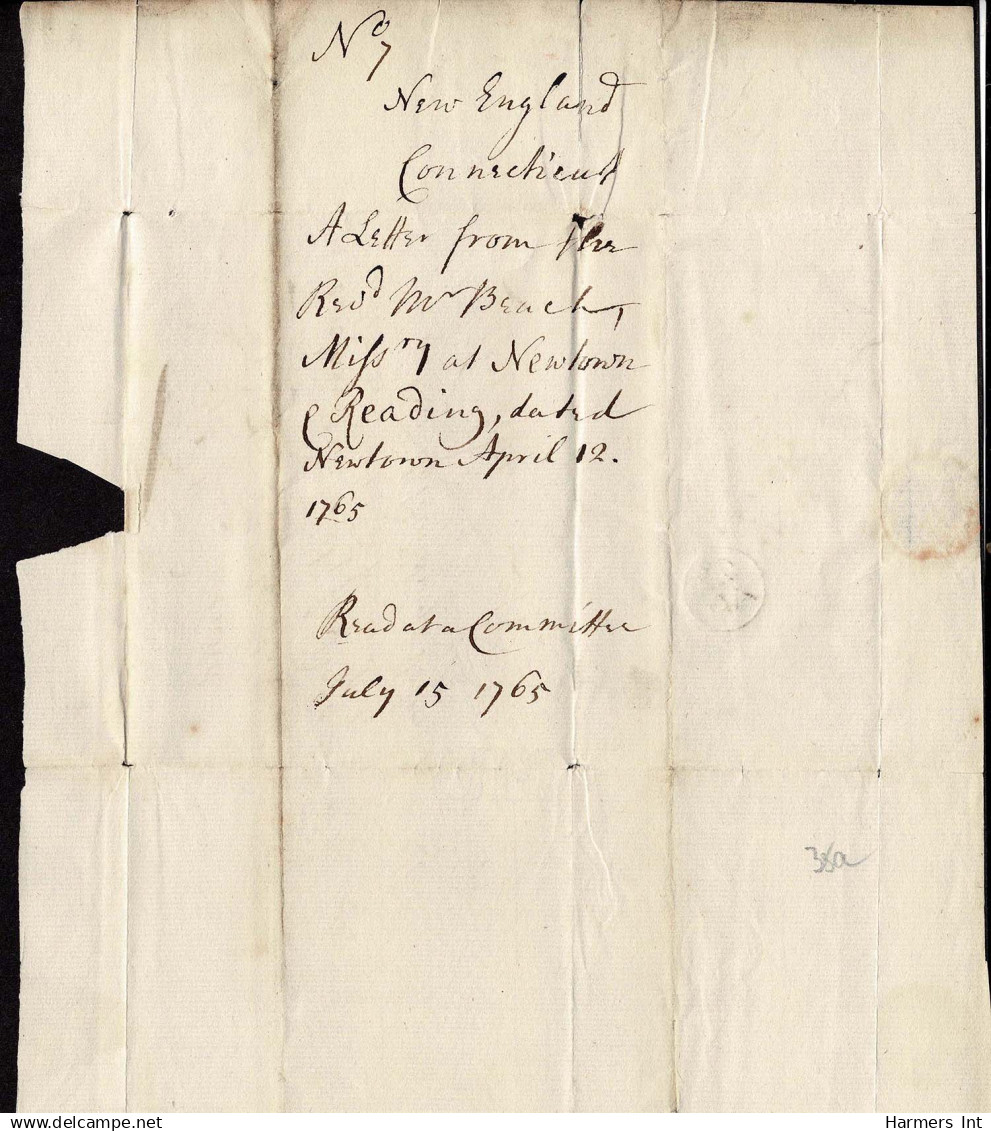 N⁰ 7
New England
Connecticut
A Letter from the
Revᵈ Mʳ Beach,
Missʳʸ at Newtown
& Reading, dated
Newtown April 12.
1765
Read at a Committee
July 15 1765
38a
Harmers Int